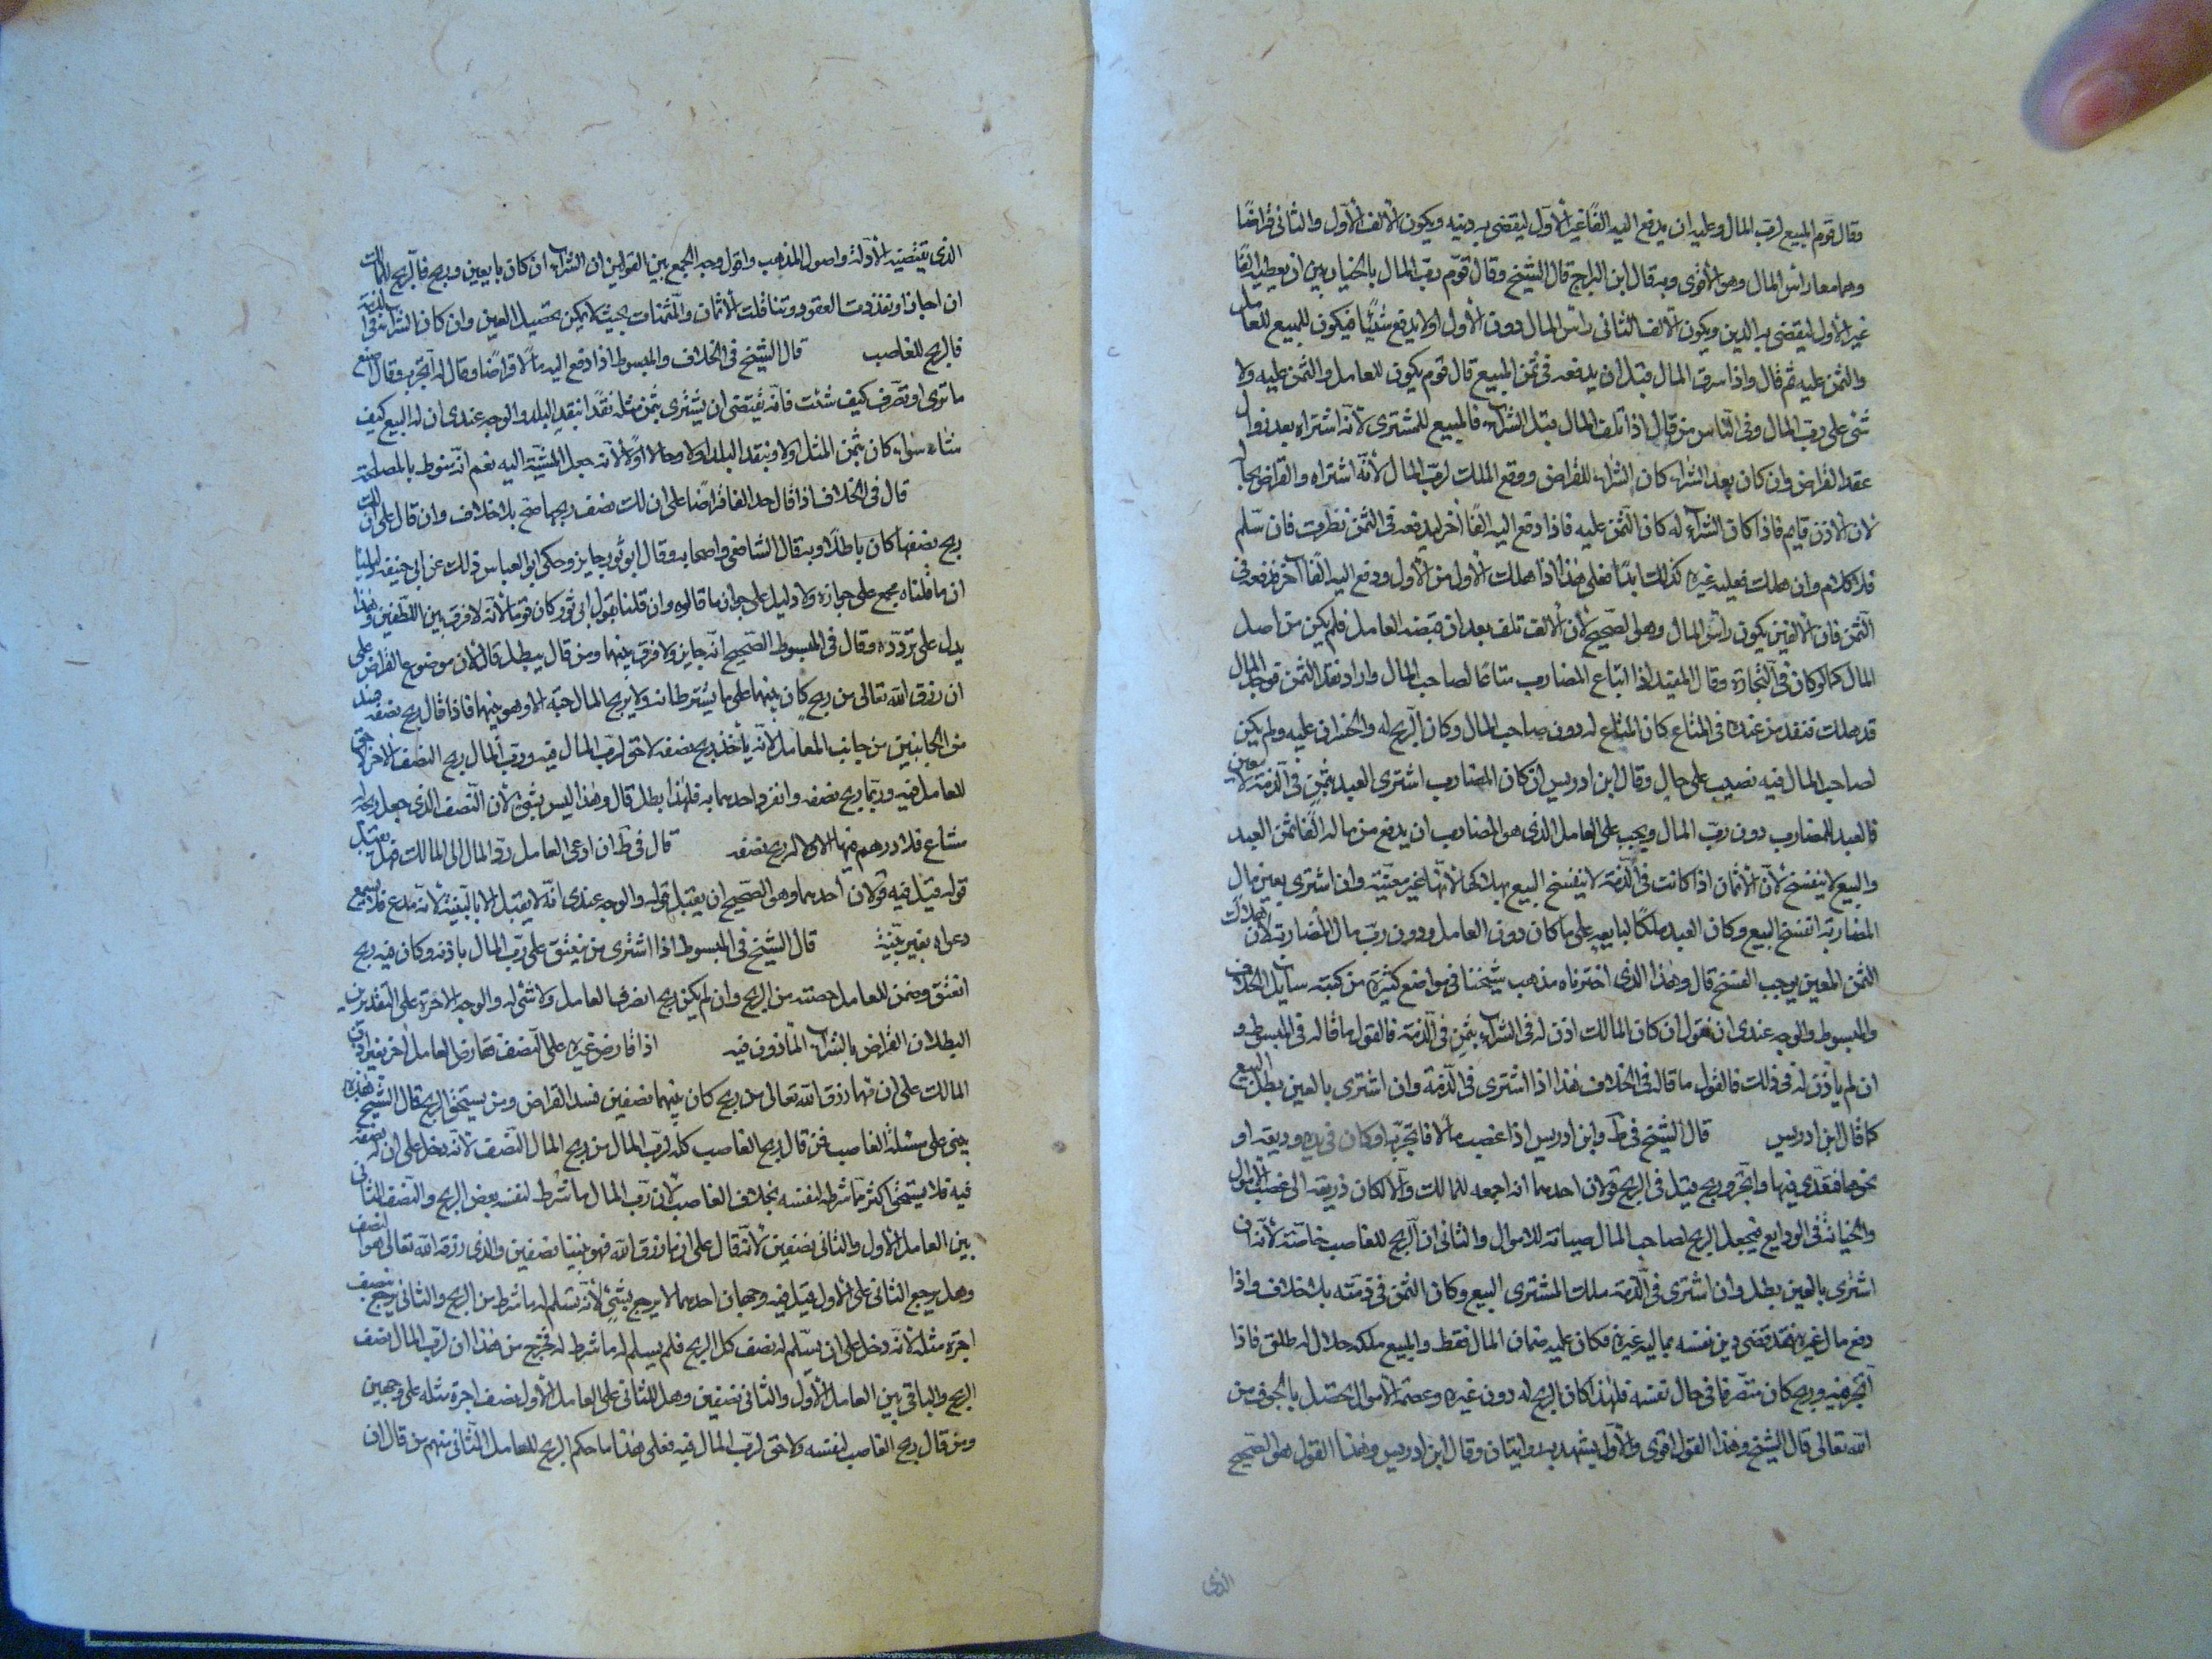 وقال قوم المبيع لرب المال وعليه ان يدفع اليه الفا غير الأول ليقضى به دينه ويكون الألف الأول والثانى قراضا
وهما معا رأس المال وهو الأقوى وبه قال ابن البراج قال الشيخ وقال قوم رب المال بالخيار بين ان يعطيه الفا
غير الأول ليقضى به الدين ويكون الألف الثانى رأس المال دون الأول او لا يدفع شيئا فيكون المبيع للعامل
والثمن عليه ثم قال واذا سرق المال قبل ان يدفعه فى ثمن المبيع قال قوم يكون للعامل والثمن عليه ولا
شئ على رب المال وفى الناس من قال اذا تلف المال قبل الشراء فالمبيع للمشترى لأنه اشتراه بعد زوال
عقد القراض وان كان بعد الشراء كان الشراء للقراض ووقع الملك لرب المال لأنه اشتراه والقراض بحاله
لأن الاذن قايم فاذا كان الشراء له كان الثمن عليه فاذا دفع اليه الفا اخر ليدفعه فى الثمن نظرت فان سلم
فلا كلام وان هلك فعليه غيره كذلك ابدا فعلى هذا اذا هلك الأول من الأول ودفع اليه الفا آخر فدفع فى
الثمن فان الألفين يكون رأس المال وهو الصحيح لأن الألف تلف بعد ان قبضه العامل فلم يكن من اصل
المال كما لو كان فى التجارة وقال المفيد اذا ابتاع المضارب متاعا لصاحب المال واراد نقد الثمن فوجد المال
قد هلك فنقد من عنده فى المتاع كان المتاع له دون صاحب المال وكان الربح له والخسران عليه ولم يكن
لصاحب المال فيه نصيب على حال وقال ابن ادريس ان كان المضارب اشترى العبد بثمن فى الذمة لا بعين
فالعبد للمضارب دون رب المال ويجب على العامل الذى هو المضارب ان يدفع من ماله الفا ثمن العبد
والبيع لا ينفسخ لأن الأثمان اذا كانت فى الذمة لا ينفسخ البيع بهلاكها لأنها غير معينة وان اشترى بعين مال
المضاربة انفسخ البيع وكان العبد ملكا لبايعه على ما كان دون العامل ودون رب مال المضاربة لأن هلاك
الثمن المعين يوجب الفسخ قال وهذا الذى اخترناه مذهب شيخنا فى مواضع كثيرة من كتبه سايل الخلاف
والمبسوط والوجه عندى ان نقول ان كان المالك اذن له فى الشراء بثمن فى الذمة فالقول ما قاله فى المبسوط و
ان لم يأذن له فى ذلك فالقول ما قاله فى الخلاف هذا اذا اشترى فى الذمة وان اشترى بالعين بطل البيع
كما قال ابن ادريس قال الشيخ فى ط وابن ادريس اذا غصب مالا فاتجر به او كان فى يده وديعة او
نحوها فتعدى فيها واتجر وربح قيل فى الربح قولان احدهما انه اجمعه للمالك والا لكان ذريعة الى غصب الأموال
والخيانة فى الودايع فيجعل الربح لصاحب المال صيانة للاموال والثانى ان الربح للغاصب خاصة لأنه ان
اشترى بالعين بطل وان اشترى فى الذمة ملك المشترى المبيع وكان الثمن فى ذمته بلا خلاف واذا
دفع مال غيره فقد قضى دين نفسه بمال غيره فكان عليه ضمان المال فقط والمبيع ملكه حلال له طلق فاذا
اتجر فيه وربح كان متصرفا فى مال نفسه فلهذا كان الربح له دون غيره وعصمة الأموال تحصل بالخوف من
الله تعالى قال الشيخ وهذا القول اقوى والأول يشهد به روايتان وقال ابن ادريس وهذا القول هو الصحيح
الذى
الذى يقتضيه الأدلة واصول المذهب واقول وجه الجمع بين القولين ان الشراء ان كان بالعين وربح فالربح للمالك
ان اجاز او تعذرت العقود وتناقلت الأثمان والمثمنات بحيث لا يمكن تحصيل العين وان كان الشراء فى الذمة
فالربح للغاصب قال الشيخ فى الخلاف والمبسوط اذا دفع اليه مالا قراضا وقال له اتجر به وقال اصنع
ما ترى او تصرف كيف شئت فانه يقتضى ان يشترى بثمن مثله نقدا بنقد البلد والوجه عندى ان له البيع كيف
شاء سواء كان بثمن المثل او لا وبنقد البلد او لا وحالا او لا لأنه جعل المشية اليه نعم انه منوط بالمصلحة
قال فى الخلاف اذا قال خذ الفا قراضا على ان لك نصف ربحها صح بلا خلاف وان قال على ان لك
ربح نصفها كان باطلا وبه قال الشافعى واصحابه وقال ابو ثور جايز وحكى ابو العباس ذلك عن ابى حنيفة دليلنا
ان ما قلناه مجمع على جوازه ولا دليل على جواز ما قالوه وان قلنا بقول ابى ثور كان قويا لأنه لا فرق بين اللفظين وهذا
يدل على تردده وقال فى المبسوط الصحيح انه جايز ولا فرق بينهما ومن قال يبطل قال لأن موضوع القراض على
ان رزق الله تعالى من ربح كان بينهما على ما يشترطانه ولا يربح المال حبة الا وهو بينهما فاذا قال ربح نصفه ضد
من الجانبين من جانب العامل لأنه يأخذ ربح نصفه لا حق لرب المال فيه ورب المال ربح النصف الآخر لا حق
للعامل فيه وربما ربح نصفه وانفرد احدهما به فلهذا بطل قال وهذا ليس بشئ لأن النصف الذى جعل ربحه له
مشاع فلا درهم منها الا وله ربح نصفه قال فى ط ان ادعى العامل رد المال الى المالك فهل يقبل
قوله قيل فيه قولان احدهما وهو الصحيح ان يقبل قوله والوجه عندى انه لا يقبل الا بالبينة لأنه مدع فلا يسمع
دعواه بغير بينة قال الشيخ فى المبسوط اذا اشترى من ينعتق على رب المال باذنه وكان فيه ربح
انعتق وضمن للعامل حصته من الربح وان لم يكن ربح انصرف العامل ولا شئ له والوجه الأجرة على التقديرين
البطلان القراض بالشراء المأذون فيه اذا قارض غيره على النصف فقارض العامل اخر بغير اذن
المالك على ان مهما رزق الله تعالى من ربح كان بينهما نصفين فسد القراض ومن يستحق الربح قال الشيخ هذه
يبنى على مسئلة الغاصب فمن قال ربح الغاصب كله لرب المال من ربح المال النصف لأنه دخل على ان له نصفه
فيه فلا يستحق اكثر مما شرطه لنفسه بخلاف الغاصب لأن رب المال ما شرط لنفسه بعض الربح والنصف الثانى
بين العامل الأول والثانى نصفين لأنه قال على ان ما رزق الله فهو بيننا نصفين والذى رزقه الله تعالى هو النصف
وهل يرجع الثانى على الأول قيل فيه وجهان احدهما لا يرجع بشئ لأنه يسلم له ما شرط من الربح والثانى يرجع بنصف
اجرة مثله لأنه دخل على ان يسلم له نصف كل الربح فلم يسلم له ما شرط له فخرج من هذا ان لرب المال نصف
الربح والباقى بين العامل الأول والثانى نصفين وهل للثانى على العامل الأول نصف اجرة مثله على وجهين
ومن قال ربح الغاصب لنفسه ولا حق لرب المال فيه فعلى هذا ما حكم الربح للعامل الثانى منهم من قال ان